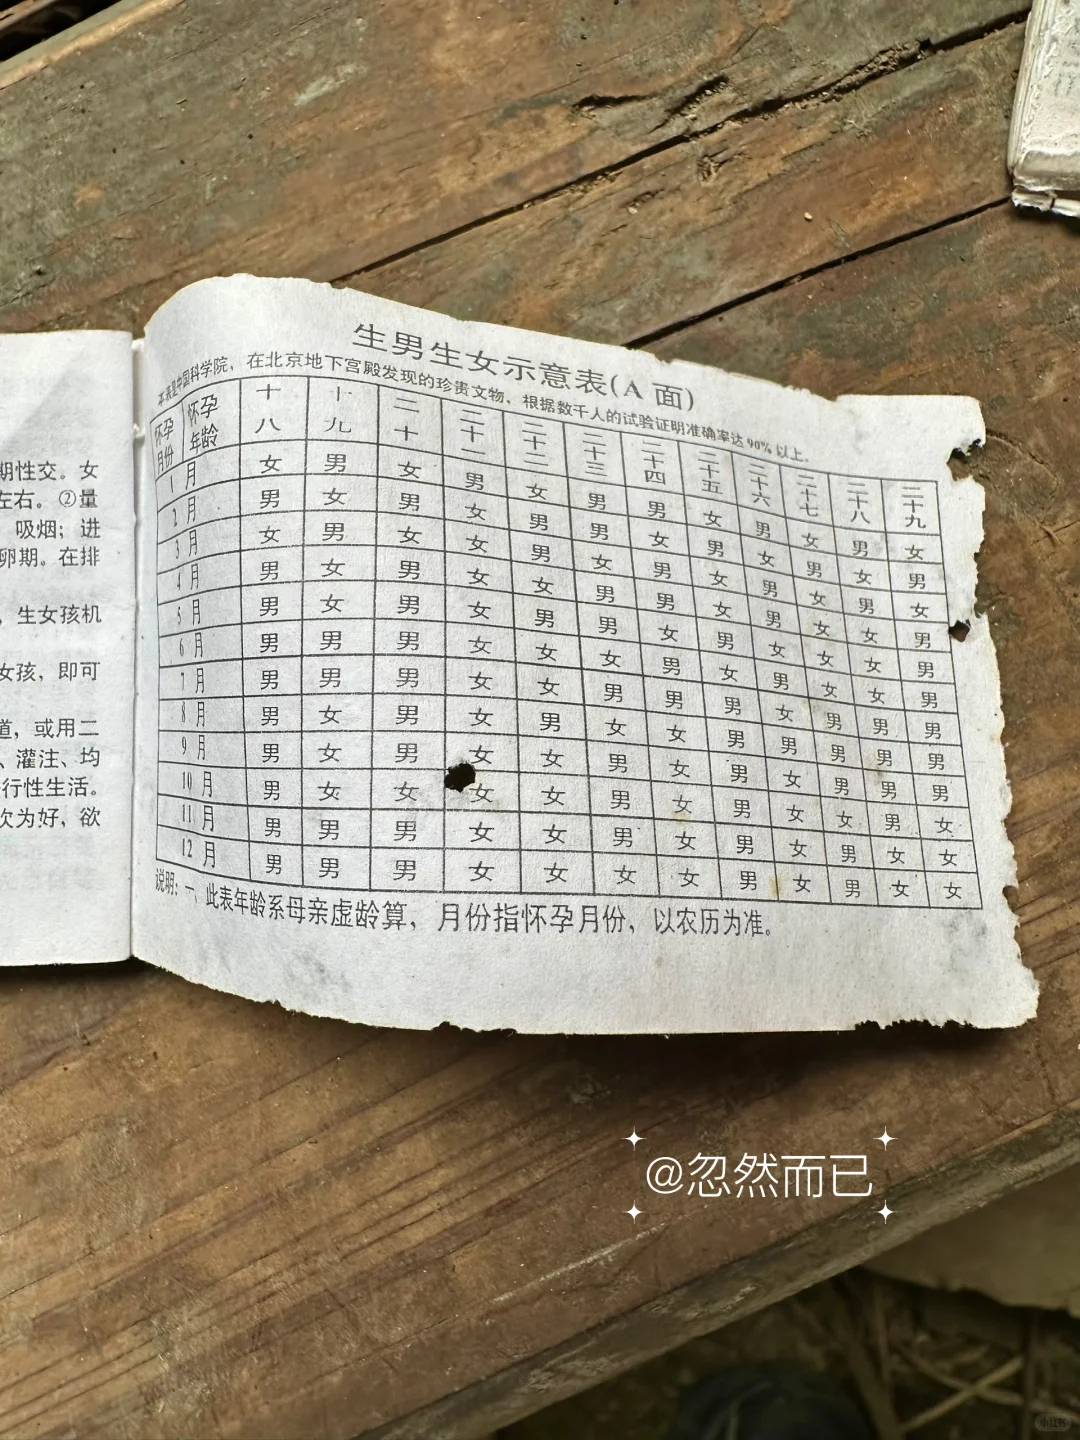 期性交。女
左右。②量
吸烟；进
卵期。在排
，生女孩机
女孩，即可
道，或用二
、灌注、均
行性生活。
次为好，欲
生男生女示意表(A 面)
本表是中国科学院，在北京地下宫殿发现的珍贵文物，根据数千人的试验证明准确率达90%以上。
怀孕月份 怀孕年龄 十八 十九 二十 二十一 二十二 二十三 二十四 二十五 二十六 二十七 二十八 二十九
1 月 女 男 女 男 女 男 男 女 男 女 男 女
2 月 男 女 男 女 男 男 女 男 女 男 女 男
3 月 女 男 女 女 男 女 男 女 男 女 男 女
4 月 男 女 男 女 女 女 男 女 男 女 男 男
5 月 男 女 男 女 男 男 女 男 女 女 女 男
6 月 男 男 男 女 女 女 男 女 男 女 女 男
7 月 男 男 男 女 女 男 男 男 女 男 男 男
8 月 男 女 男 女 男 女 女 男 男 男 男 男
9 月 男 女 男 女 女 男 女 男 女 男 男 男
10 月 男 女 女 女 女 男 女 男 女 女 男 女
11 月 男 男 男 女 女 男 女 男 女 男 女 女
12 月 男 男 男 女 女 女 女 男 女 男 女 女
说明：一、此表年龄系母亲虚龄算，月份指怀孕月份，以农历为准。
@忽然而已
小红书